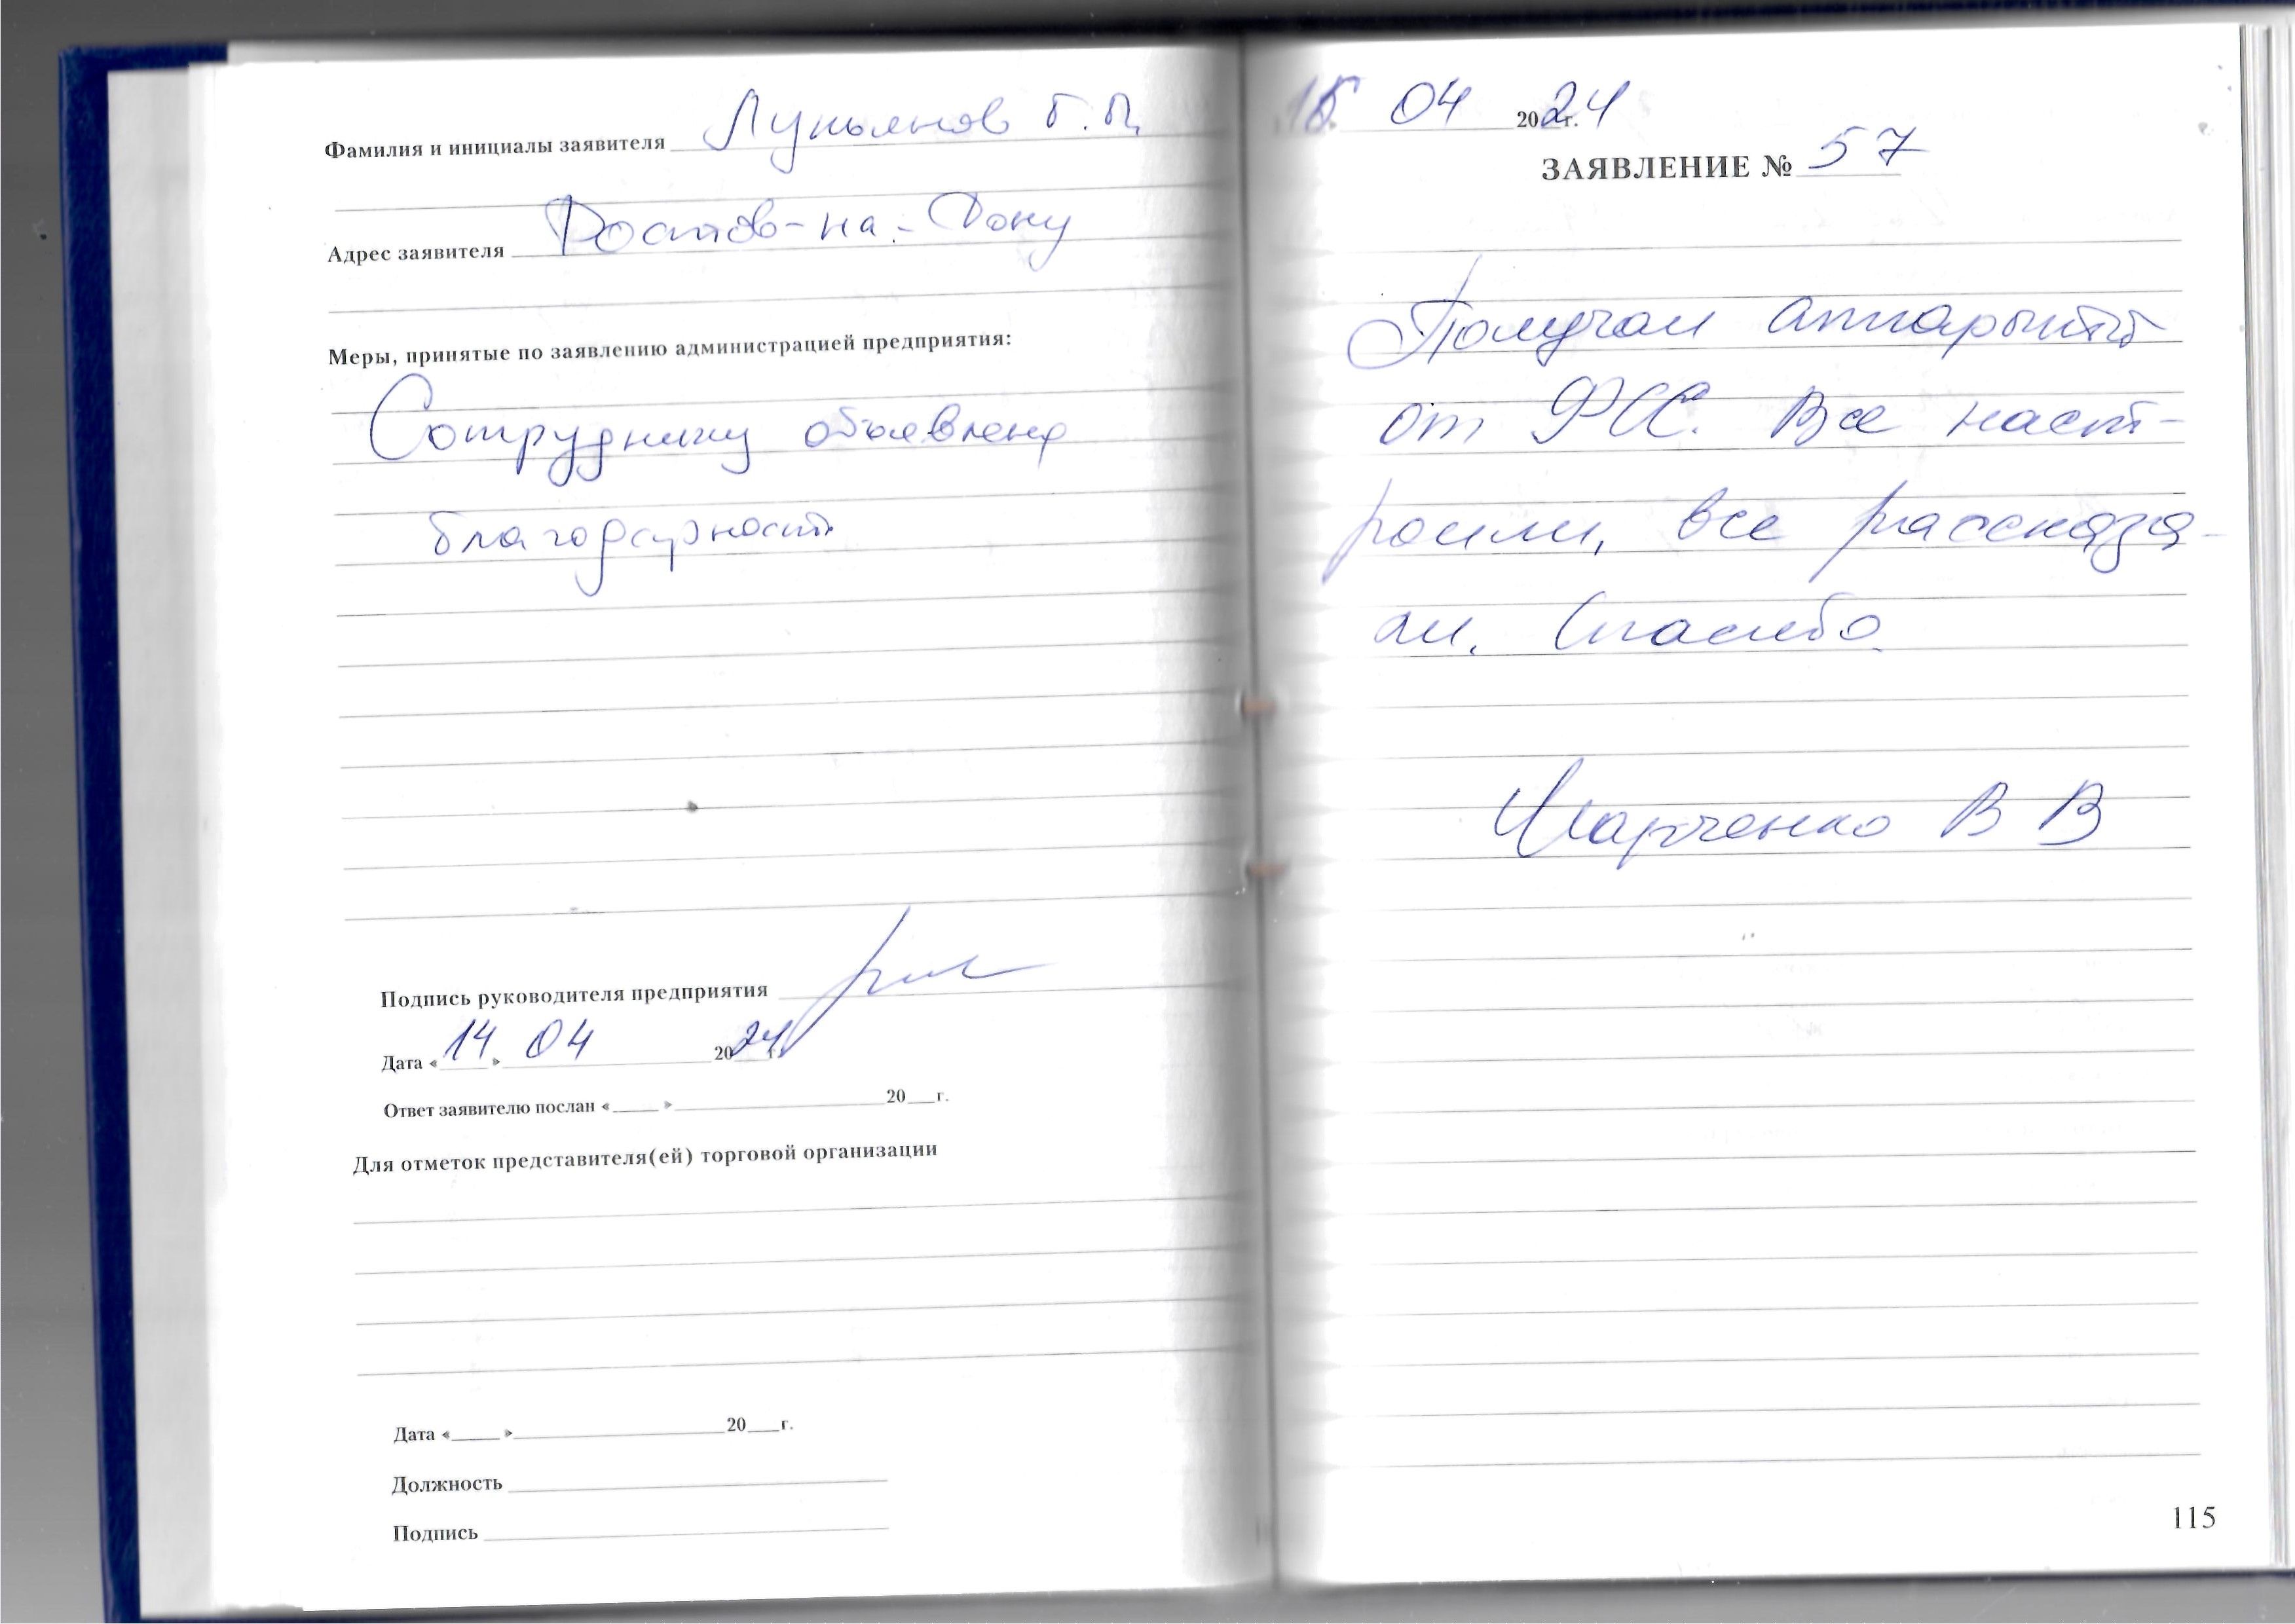 Фамилия и инициалы заявителя Лукьянов Г. П.
Адрес заявителя Ростов-на-Дону
Меры, принятые по заявлению администрацией предприятия:
Сотруднику объявлена
благодарность
Подпись руководителя предприятия
Дата « 14 » 04 2024 г.
Ответ заявителю послан «____» ____ 20__г.
Для отметок представителя(ей) торговой организации
Дата «____» ____ 20__г.
Должность
Подпись
15 04 2024 г.
ЗАЯВЛЕНИЕ № 57
Получал
от ФСС. Все наст-
роили, все рассказа-
ли. Спасибо.
Марченко В В
115